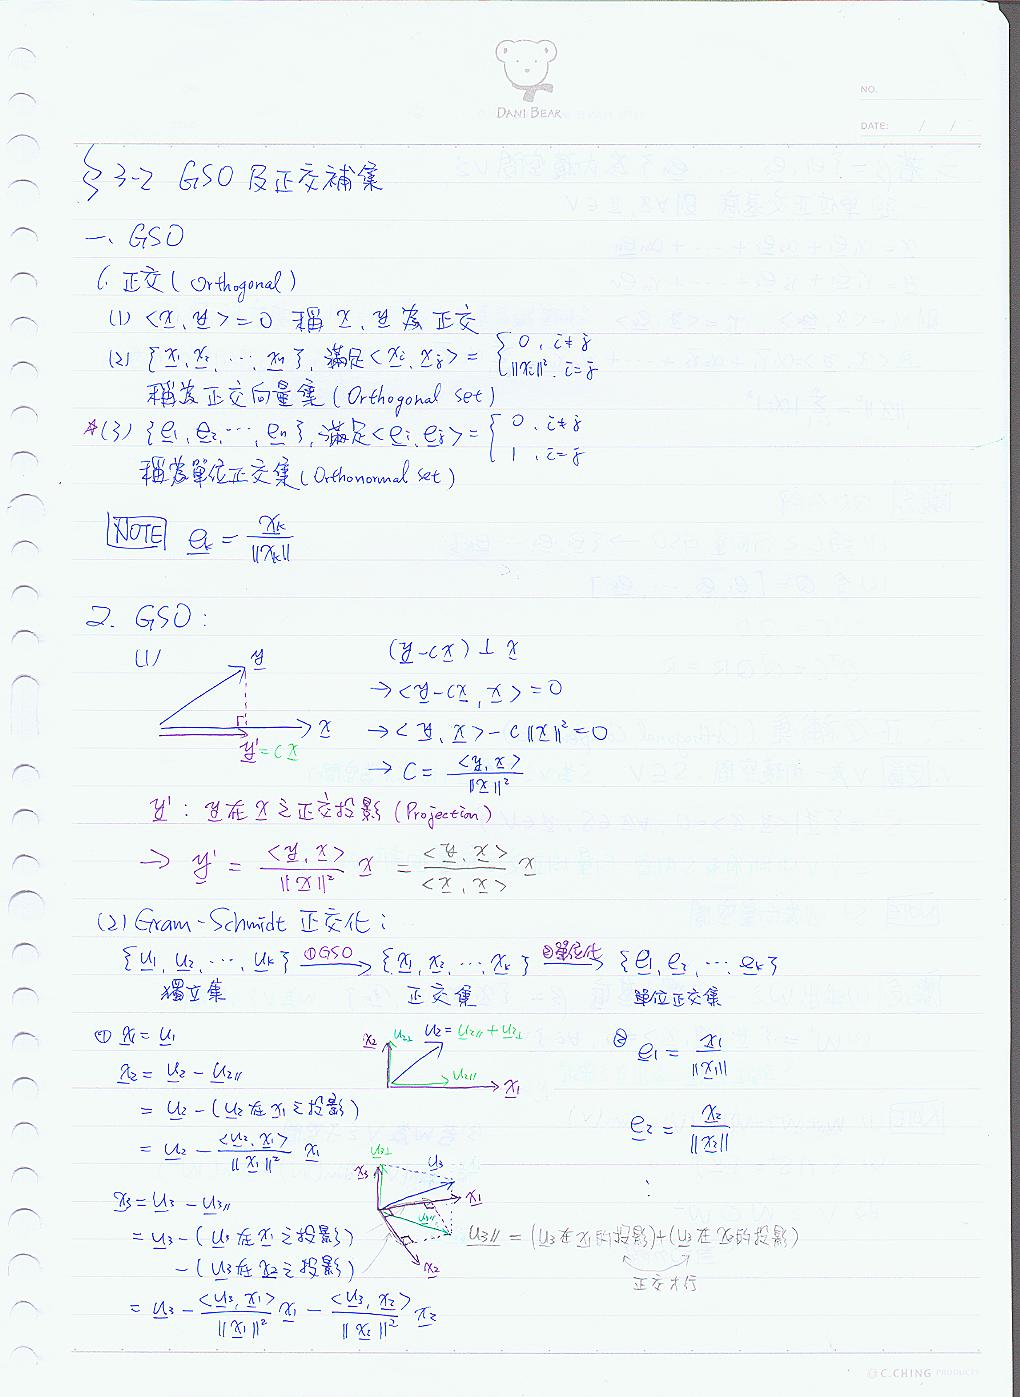 DANI BEAR
NO.
DATE: / /
§3-2 GSO 及正交補集
一、GSO
1. 正交 (Orthogonal)
(1) <x, y> = 0 稱 x, y 為 正交
(2) {x1, x2, ..., xn}, 滿足 <xi, xj> = { 0, i≠j
||xi||², i=j
稱為正交向量集 (Orthogonal set)
*(3) {e1, e2, ..., en}, 滿足 <ei, ej> = { 0, i≠j
1, i=j
稱為單位正交集 (Orthonormal set)
NOTE ek = xk / ||xk||
2. GSO:
(1) y (y-cx) ⊥ x
→ <y-cx, x> = 0
x → <y, x> - c||x||² = 0
y' = cx → c = <y, x> / ||x||²
y' : y在 x 之正交投影 (Projection)
→ y' = <y, x> / ||x||² x = <y, x> / <x, x> x
(2) Gram-Schmidt 正交化:
{u1, u2, ..., uk} ①GSO→ {x1, x2, ..., xk} ②單位化→ {e1, e2, ..., ek}
獨立集 正交集 單位正交集
① x1 = u1 x2 u2⊥ u2 = u2// + u2⊥ ② e1 = x1 / ||x1||
x2 = u2 - u2// u2// x1
= u2 - (u2 在 x1 之投影) e2 = x2 / ||x2||
= u2 - <u2, x1> / ||x1||² x1
x3 u3⊥ u3 x1 ⋮
x3 = u3 - u3//
= u3 - (u3 在 x1 之投影) u3// u3// = (u3 在 x1 的投影) + (u3 在 x2 的投影)
- (u3 在 x2 之投影) x2 正交才行
= u3 - <u3, x1> / ||x1||² x1 - <u3, x2> / ||x2||² x2
C.CHING PRODUCTS